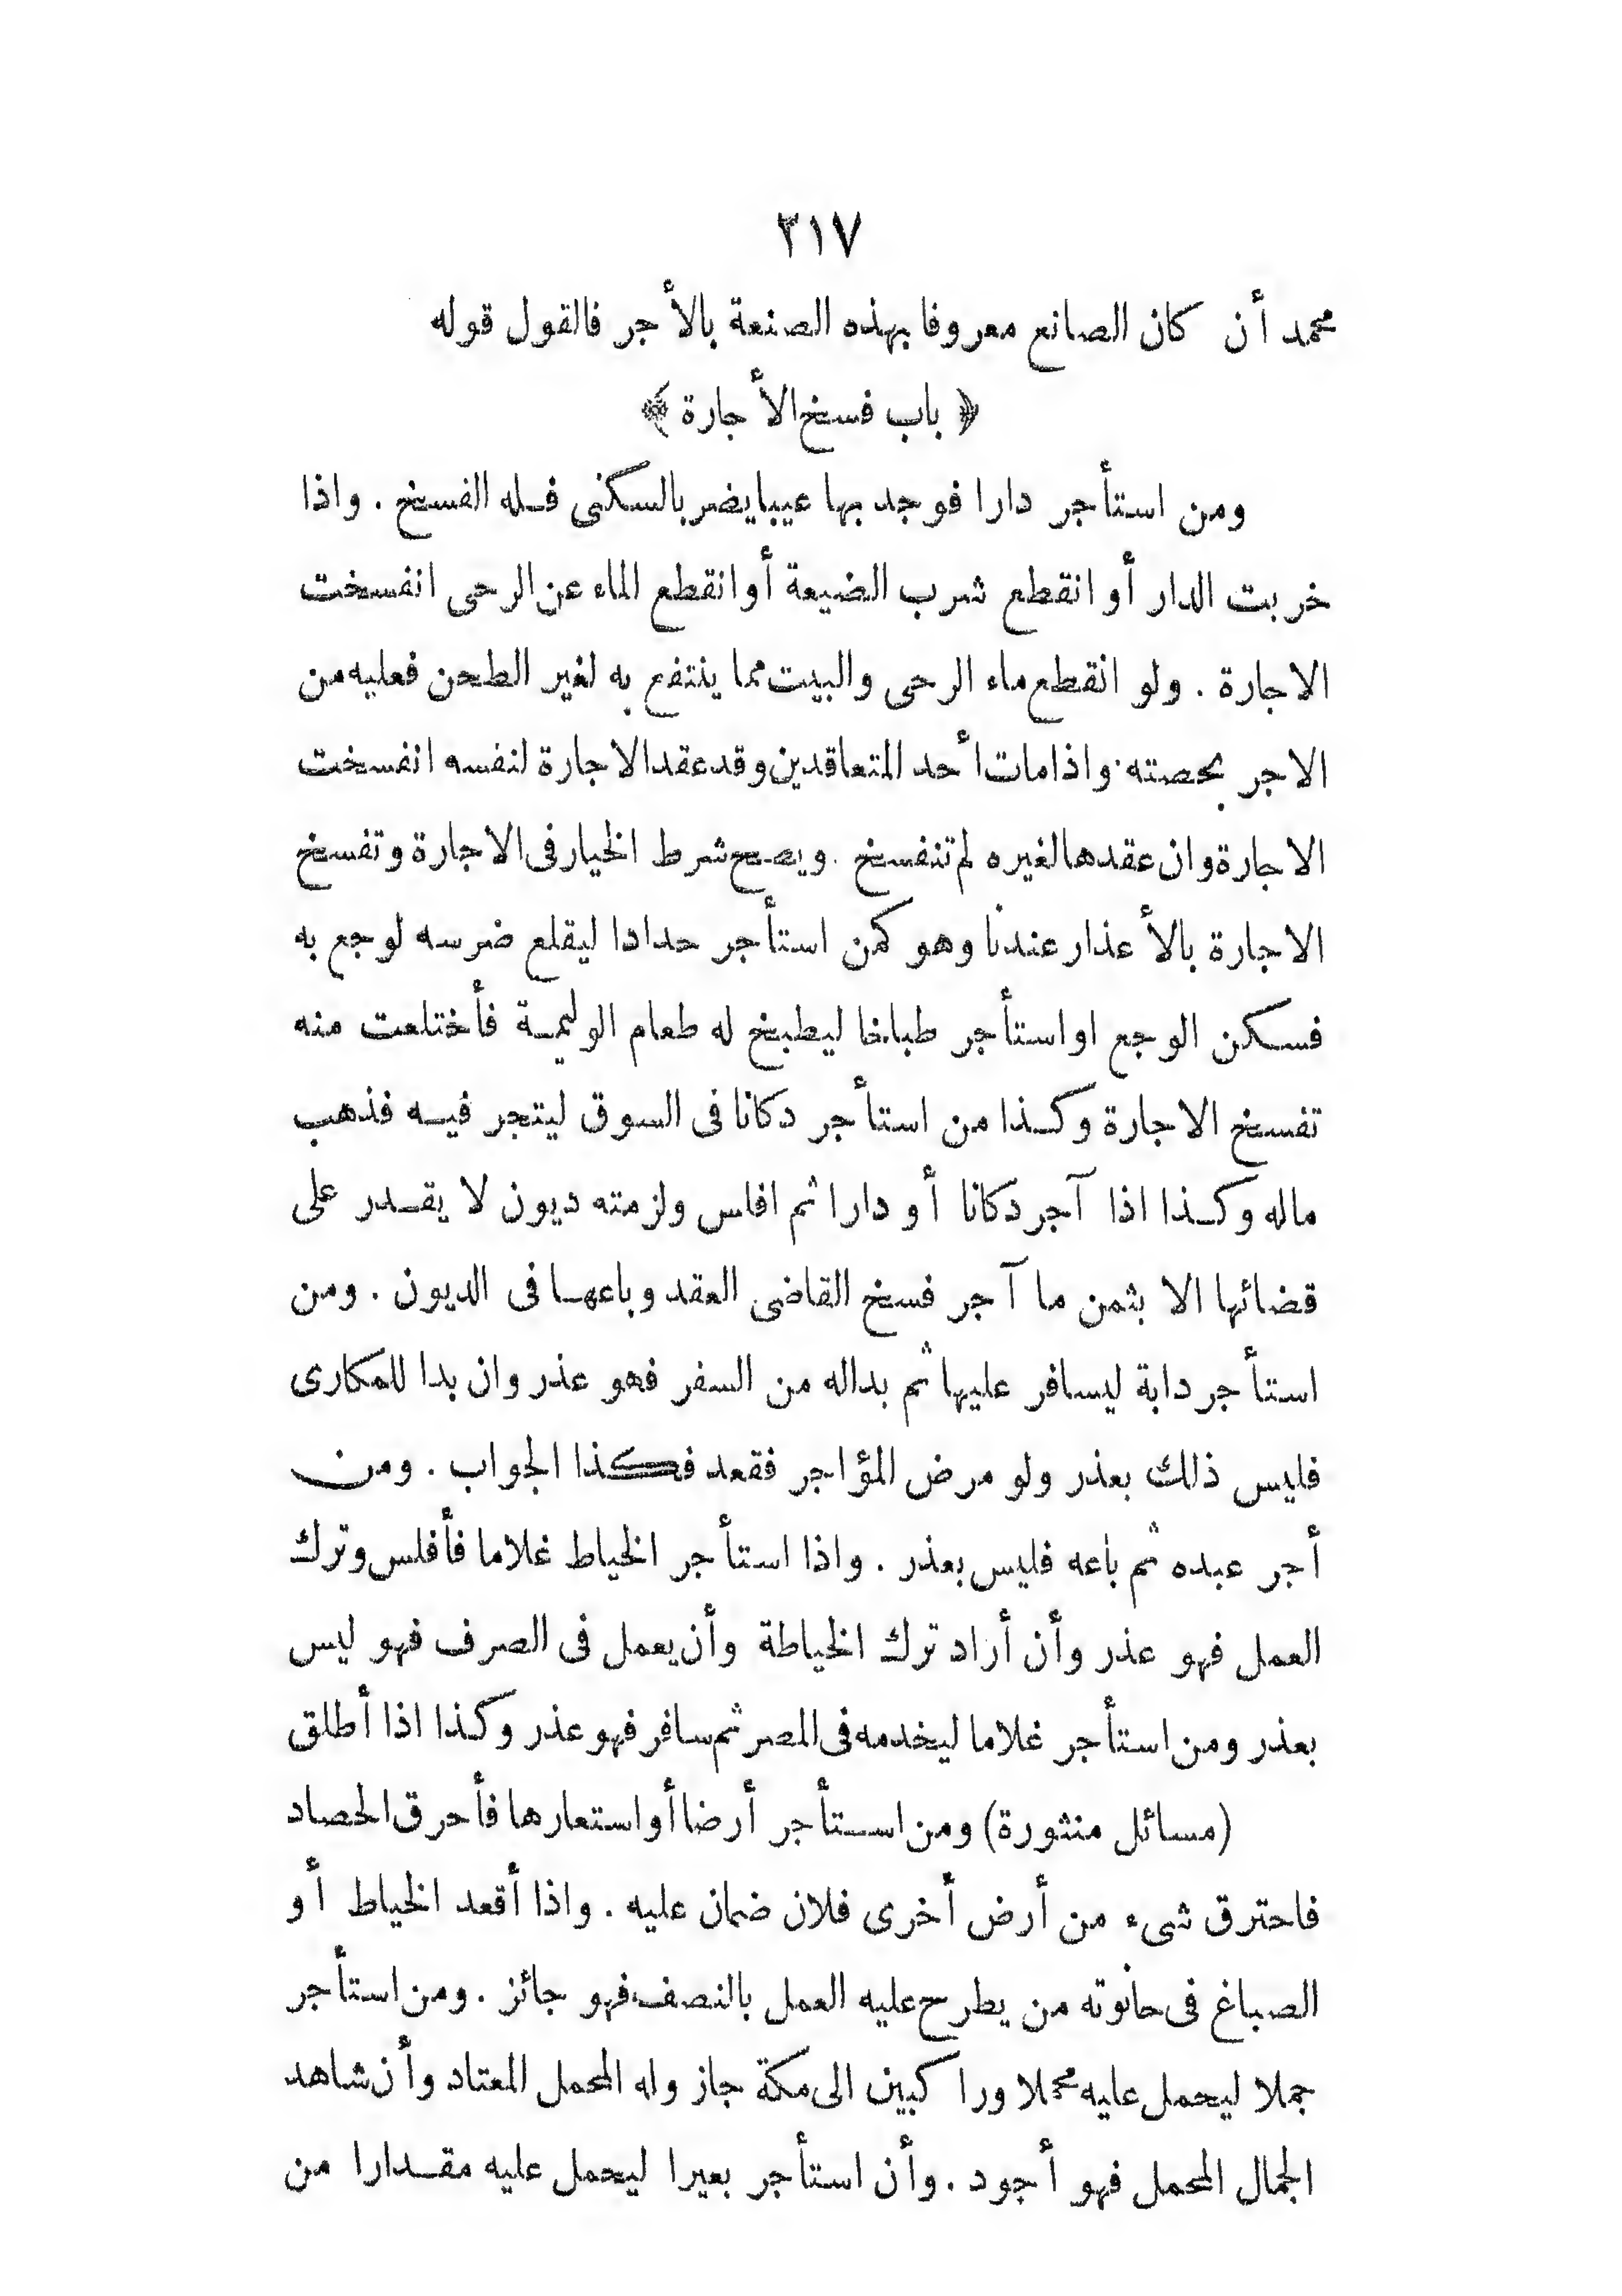 ٢١٧
محمد أن كان الصانع معروفا بهذه الصنعة بالأجر فالقول قوله
﴿ باب فسخ الأجارة ﴾
ومن استأجر دارا فوجد بها عيبا يضر بالسكنى فله الفسخ . واذا
خربت الدار أو انقطع شرب الضيعة أو انقطع الماء عن الرحى انفسخت
الاجارة . ولو انقطع ماء الرحى والبيت مما ينتفع به لغير الطحن فعليه من
الاجر بحصته . واذا مات أحد المتعاقدين وقد عقد الاجارة لنفسه انفسخت
الاجارة وان عقدها لغيره لم تنفسخ . ويصح شرط الخيار فى الاجارة وتفسخ
الاجارة بالأعذار عندنا وهو كمن استأجر حدادا ليقلع ضرسه لوجع به
فسكن الوجع او استأجر طباخا ليطبخ له طعام الوليمة فأختلعت منه
تفسخ الاجارة وكذا من استأجر دكانا فى السوق ليتجر فيه فذهب
ماله وكذا اذا آجر دكانا أو دارا ثم افلس ولزمته ديون لا يقدر على
قضائها الا بثمن ما آجر فسخ القاضى العقد وباعها فى الديون . ومن
استأجر دابة ليسافر عليها ثم بداله من السفر فهو عذر وان بدا للمكارى
فليس ذلك بعذر ولو مرض المؤاجر فقعد فكذا الجواب . ومن
أجر عبده ثم باعه فليس بعذر . واذا استأجر الخياط غلاما فأفلس وترك
العمل فهو عذر وأن أراد ترك الخياطة وأن يعمل فى الصرف فهو ليس
بعذر ومن استأجر غلاما ليخدمه فى المصر ثم سافر فهو عذر وكذا اذا أطلق
(مسائل منثورة) ومن استأجر أرضا أو استعارها فأحرق الحصاد
فاحترق شىء من أرض أخرى فلان ضمان عليه . واذا أقعد الخياط أو
الصباغ فى حانوته من يطرح عليه العمل بالنصف فهو جائز . ومن استأجر
جملا ليحمل عليه محملا وراكبين الى مكة جاز وله المحمل المعتاد وأن شاهد
الجمال المحمل فهو أجود . وأن استأجر بعيرا ليحمل عليه مقدارا من